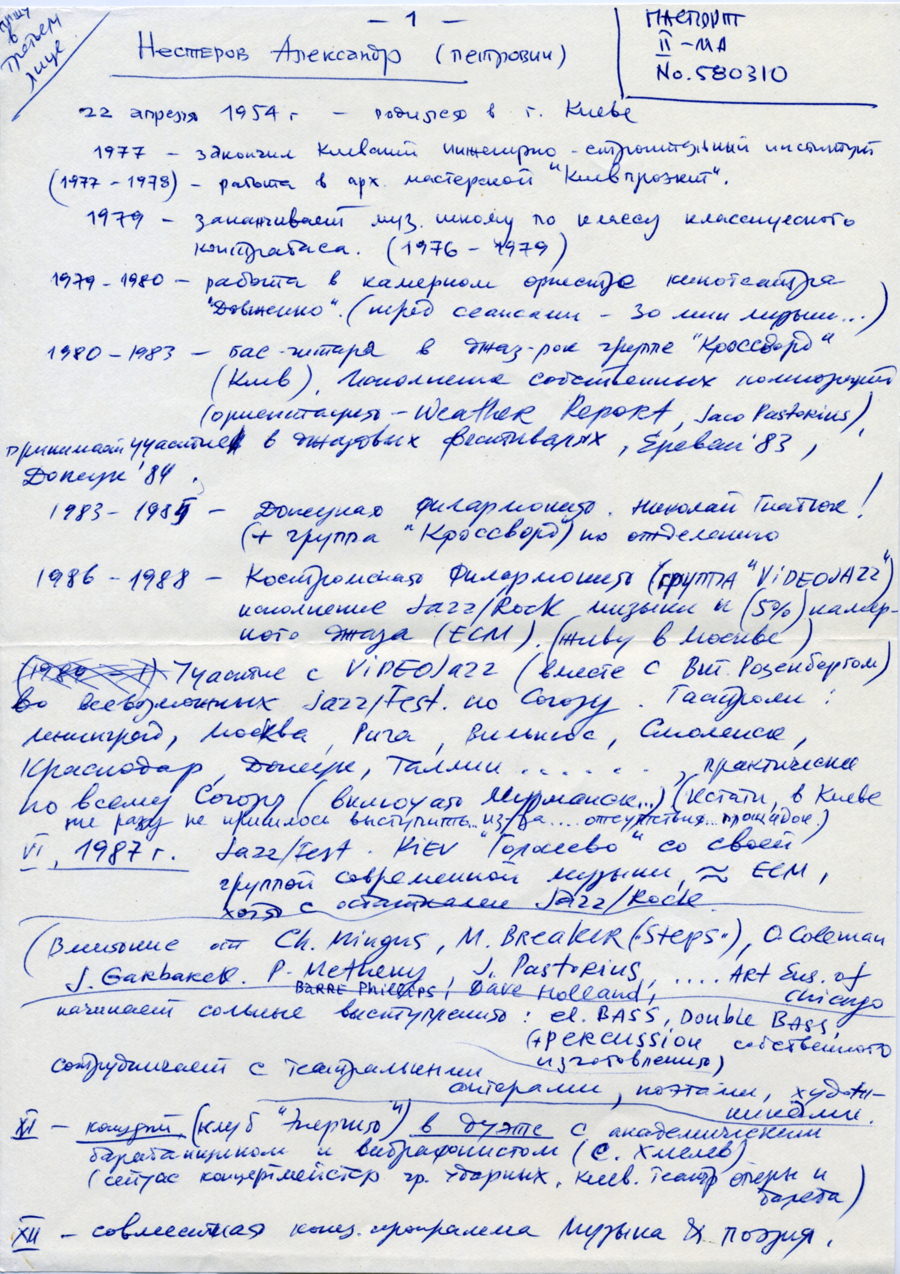 пишу
в
третьем
лице
— 1 —
Нестеров Александр (Петрович)
ПАСПОРТ
II - МА
No. 580310
22 апреля 1954 г - родился в г. Киеве
1977 - закончил Киевский инженерно-строительный институт
(1977 - 1978) - работа в арх. мастерской "Киевпроэкт".
1979 - заканчивает муз. школу по классу классического
контрабаса. (1976 - 1979)
1979 - 1980 - работа в камерном оркестре кинотеатра
"Довженко". (перед сеансами - 30 мин музыки...)
1980 - 1983 - бас-гитара в джаз-рок группе "Кроссворд"
(Киев), Исполнение собственных композиций
(ориентация - Weather Report, Jaco Pastorius),
принимает участие в джазовых фестивалях, Ереван '83,
Донецк '84.
1983 - 1985 - Донецкая филармония. Николай Гнатюк!
(+ группа "Кроссворд") по отделению
1986 - 1988 - Костромская Филармония (группа "ViDEOJAZZ")
исполнение Jazz/Rock музыки и (5%) камер-
ного джаза (ECM). (живу в Москве)
Участие с ViDEOJazz (вместе с Вит. Розенбергом)
во всевозможных Jazz/Fest. по Союзу. Гастроли:
Ленинград, Москва, Рига, Вильнюс, Смоленск,
Краснодар, Донецк, Таллин ........, практически
по всему Союзу (включая Мурманск...) (кстати, в Киеве
ни разу не пришлось выступить.. из/за.... отсутствия.. площадок)
VI, 1987 г. Jazz/Fest. KIEV "Голосеево" со своей
группой современной музыки, ≈ ECM,
хотя с остатками Jazz/Rock
(Влияние от Ch. Mingus, M. BREAKER ("Steps"), O. Coleman
J. GARBAREK. P. Metheny, J. Pastorius, .... ART Ens. of
Chicago
BARRE Phillips, Dave Holland,
начинает сольные выступления: el. BASS, Double BASS,
(+ PERCUSSION собственного
изготовления)
сотрудничает с театральными
актерами, поэтами, худож-
никами.
XI - концерт (клуб "Энергия") в дуэте с академическим
барабанщиком и вибрафонистом (С. Хмелев)
(сейчас концертмейстер гр. ударных, Киев. театр оперы и
балета)
XII - совместная конц. программа Музыка & поэзия.